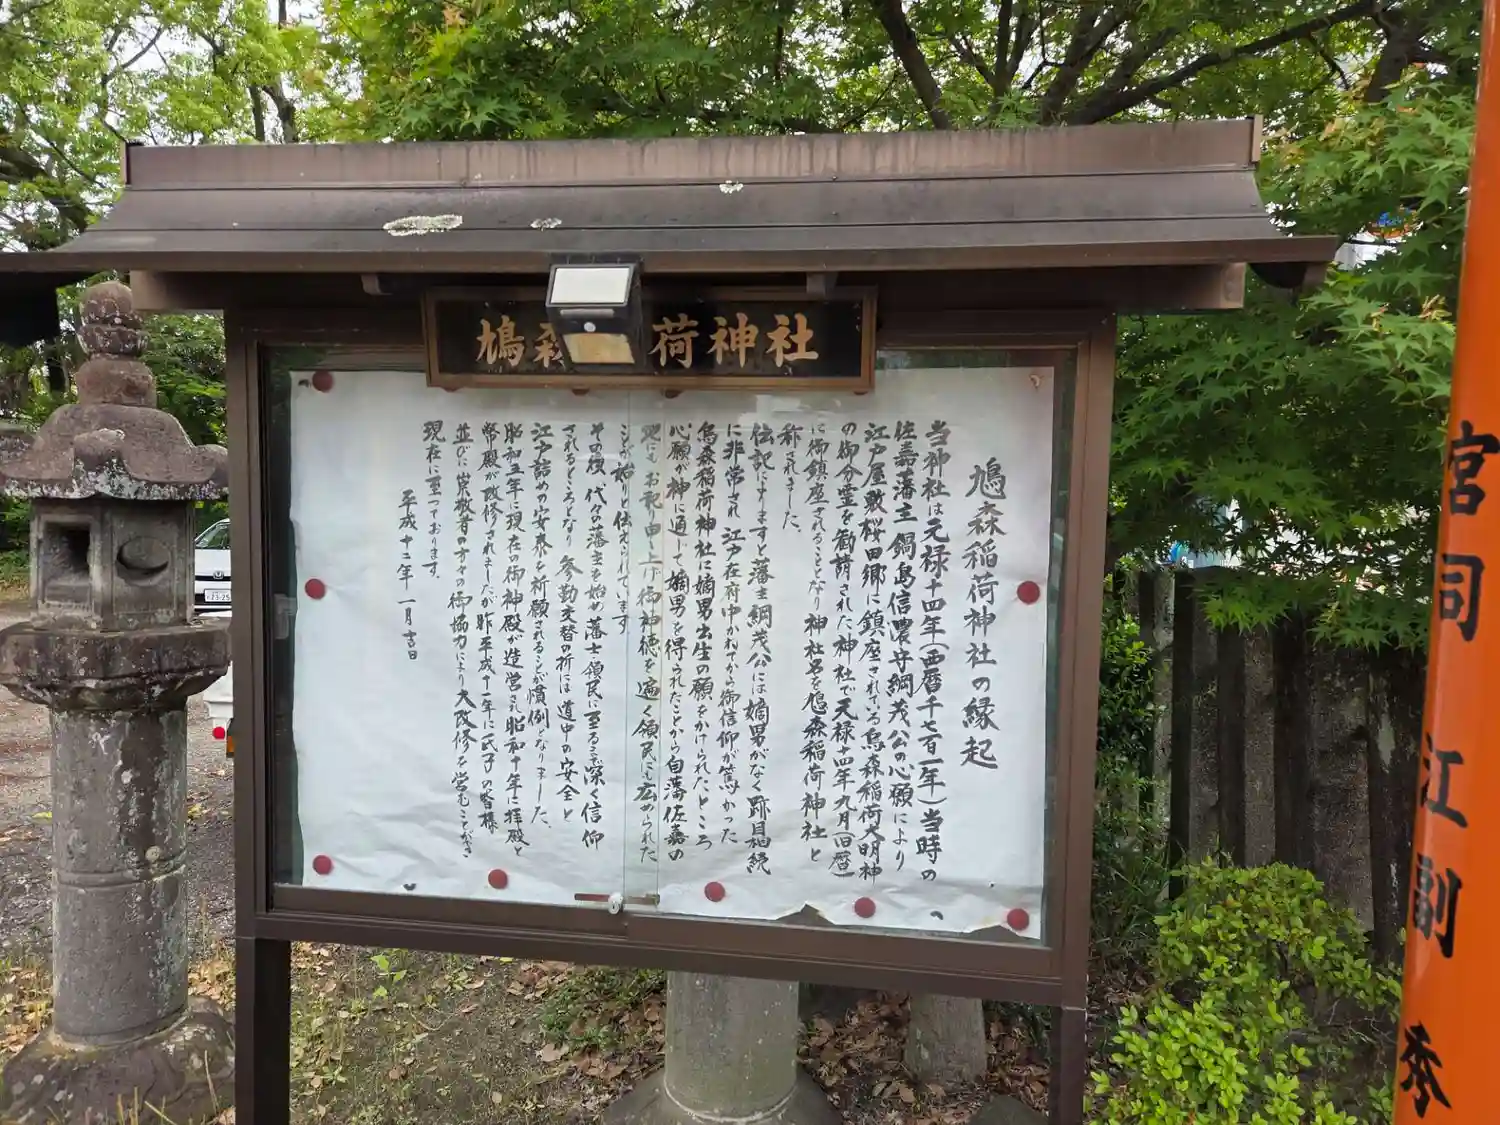 鳩森荷神社
鳩森稲荷神社の縁起
当神社は元禄十四年(西暦千七百一年)当時の
佐嘉藩主鍋島信濃守綱茂公の心願により
江戸屋敷桜田郷に鎮座されている烏森稲荷大明神
の御分霊を勧請された神社で元禄十四年九月(旧暦)
に御鎮座されることとなり神社名を鳩森稲荷神社と
称されました。
伝記によりますと藩主綱茂公には嫡男がなく跡目相続
に非常され 江戸在府中かねてから御信仰が篤かった
烏森稲荷神社に嫡男出生の願をかけられたところ
心願が神に通じて嫡男を得られたことから自藩佐嘉の
地にもお祀り申し上げ御神徳を遍く領民にも広められた
ことが始りと伝えられています
その後 代々の藩主を始め藩士領民に至るまで深く信仰
されるところとなり 参勤交替の折には道中の安全と
江戸詰めの安泰を祈願されるのが慣例となりました、
昭和五年に現在の御神殿が造営され昭和十年に拝殿と
幣殿が改修されましたが昨平成十一年に氏子の皆様
並びに崇敬者の方々の御協力により大改修を営むことができ
現在に至っております。
平成十二年一月吉日
宮司 江副 秀